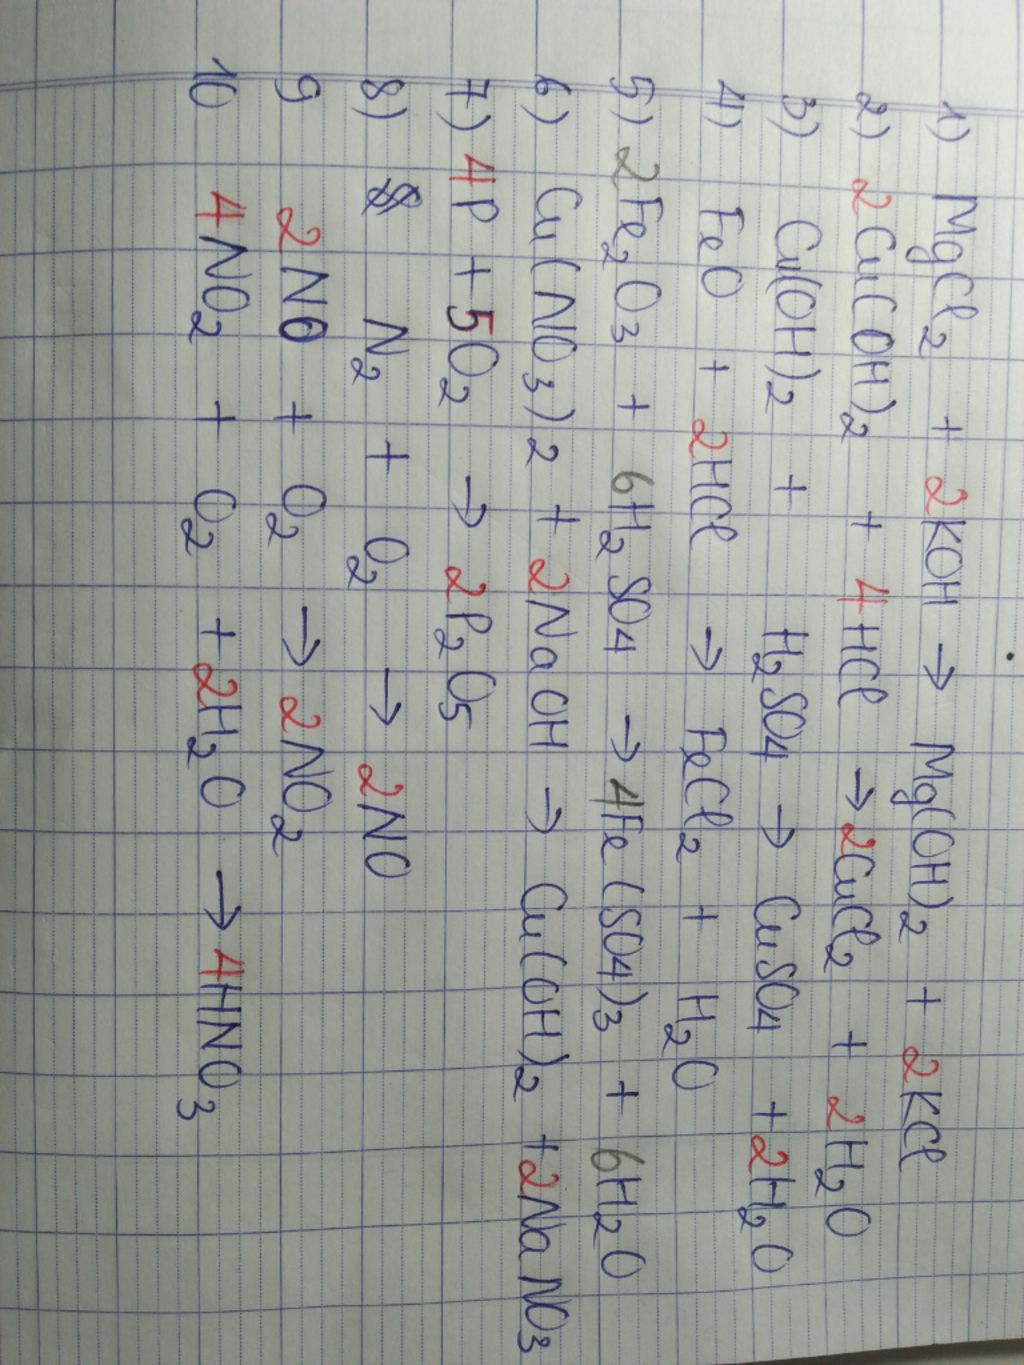 1) MgCl2 + 2KOH → Mg(OH)2 + 2KCl
2) 2Cu(OH)2 + 4HCl → 2CuCl2 + 2H2O
3) Cu(OH)2 + H2SO4 → CuSO4 + 2H2O
4) FeO + 2HCl → FeCl2 + H2O
5) 2Fe2O3 + 6H2SO4 → 4Fe(SO4)3 + 6H2O
6) Cu(NO3)2 + 2NaOH → Cu(OH)2 + 2NaNO3
7) 4P + 5O2 → 2P2O5
8) N2 + O2 → 2NO
9 2NO + O2 → 2NO2
10 4NO2 + O2 + 2H2O → 4HNO3